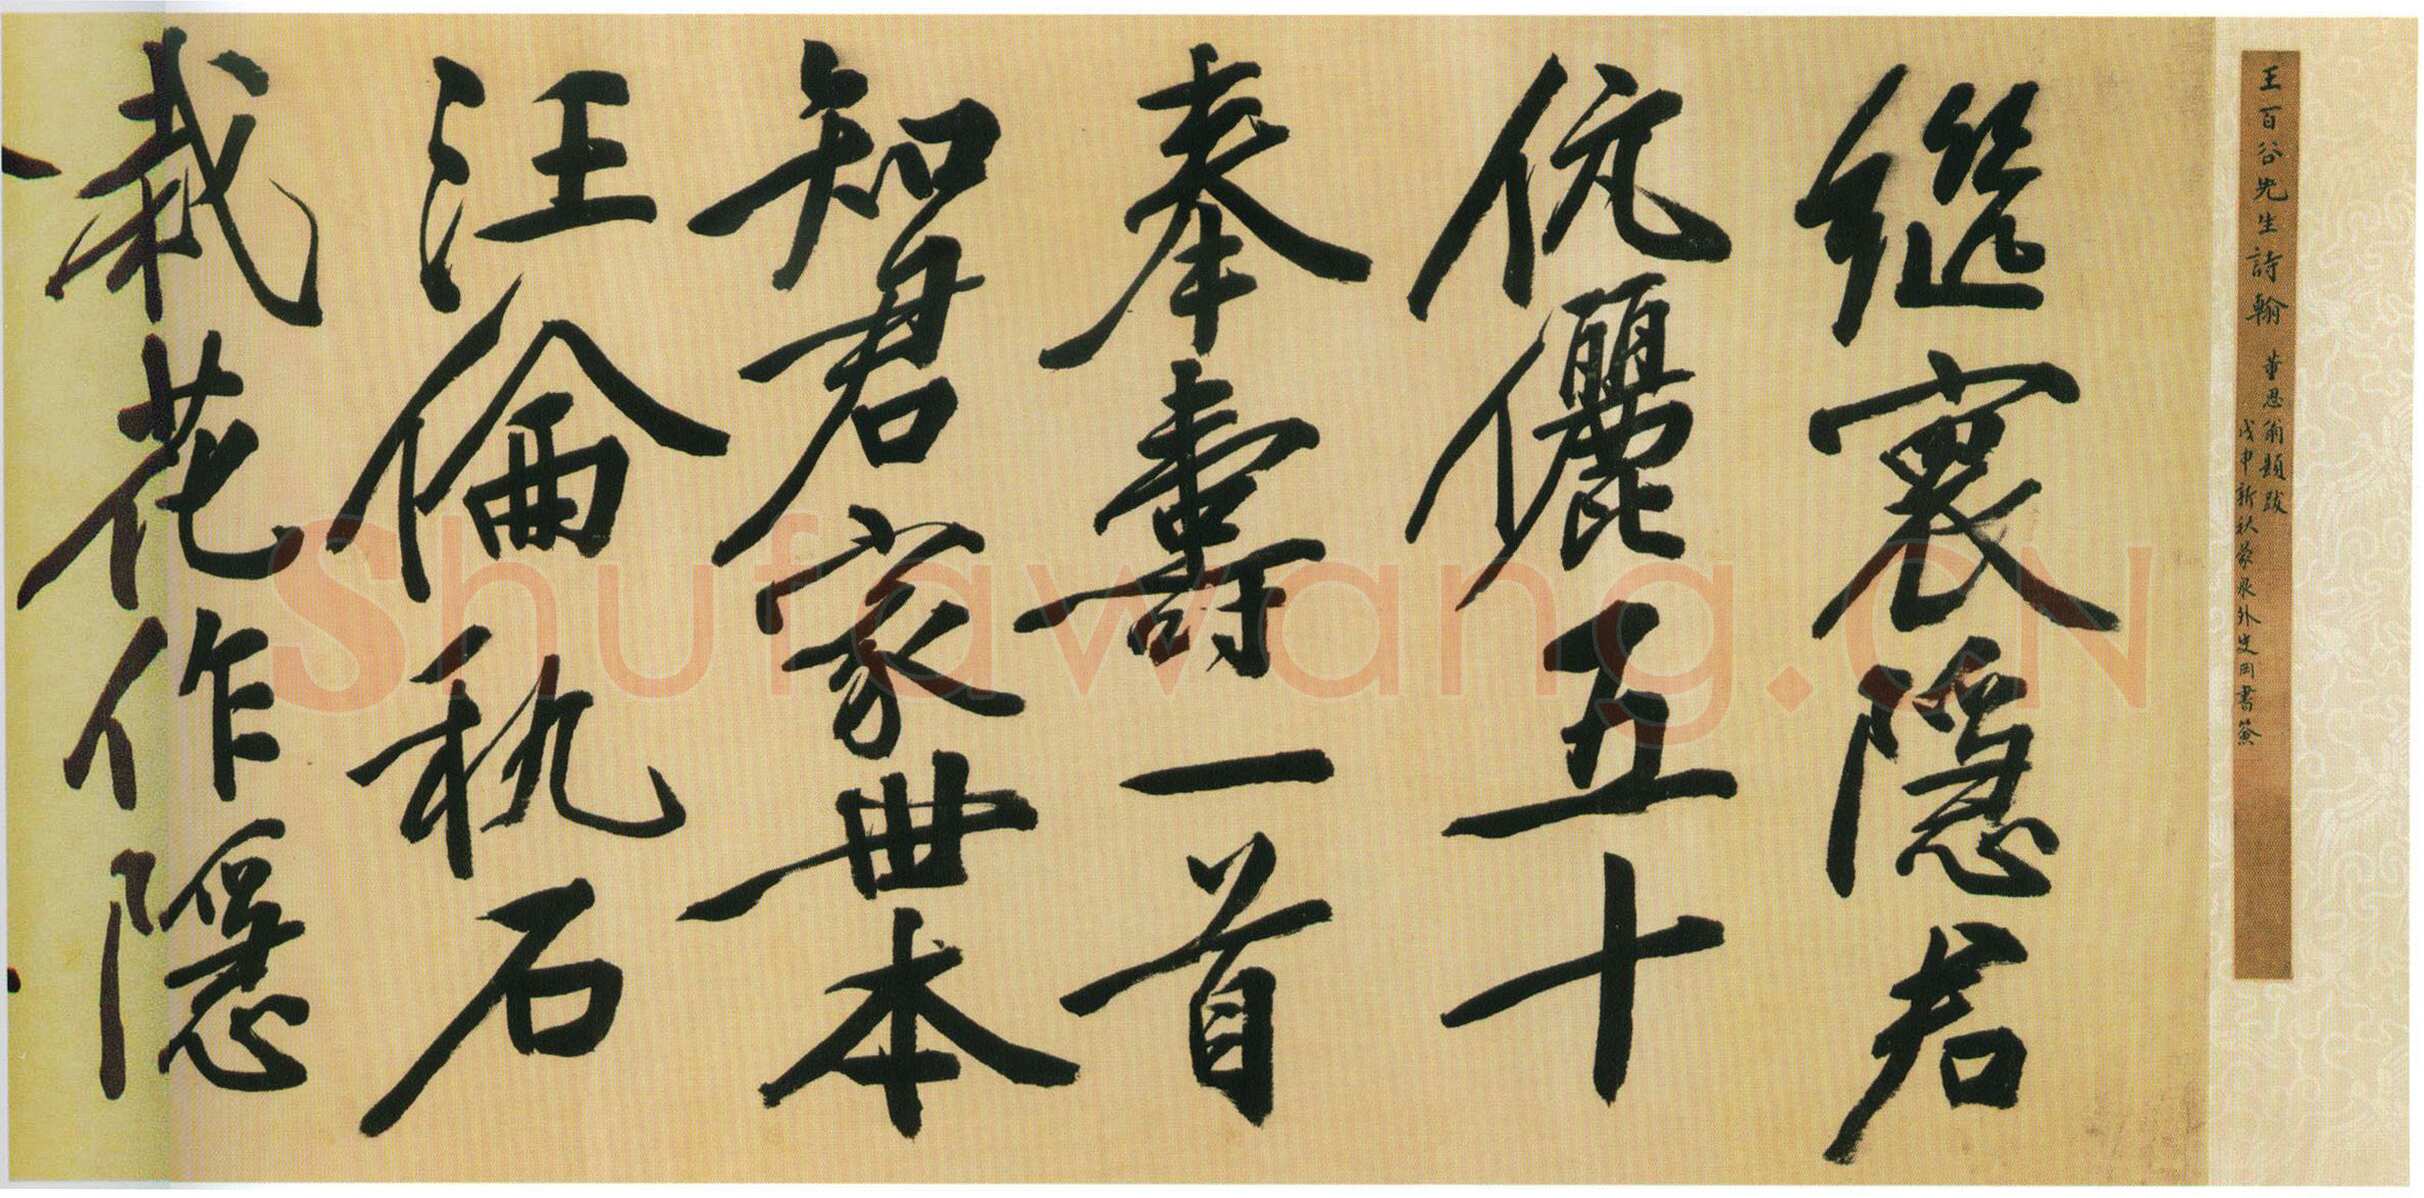 王百谷先生詩翰
董思翁題跋
戊申新秋蒙泉外史岡書簽
繼裏隱君
伉儷五十
奉壽一首
知君家世本
汪倫執石
栽花作隱
Shufawang.CN